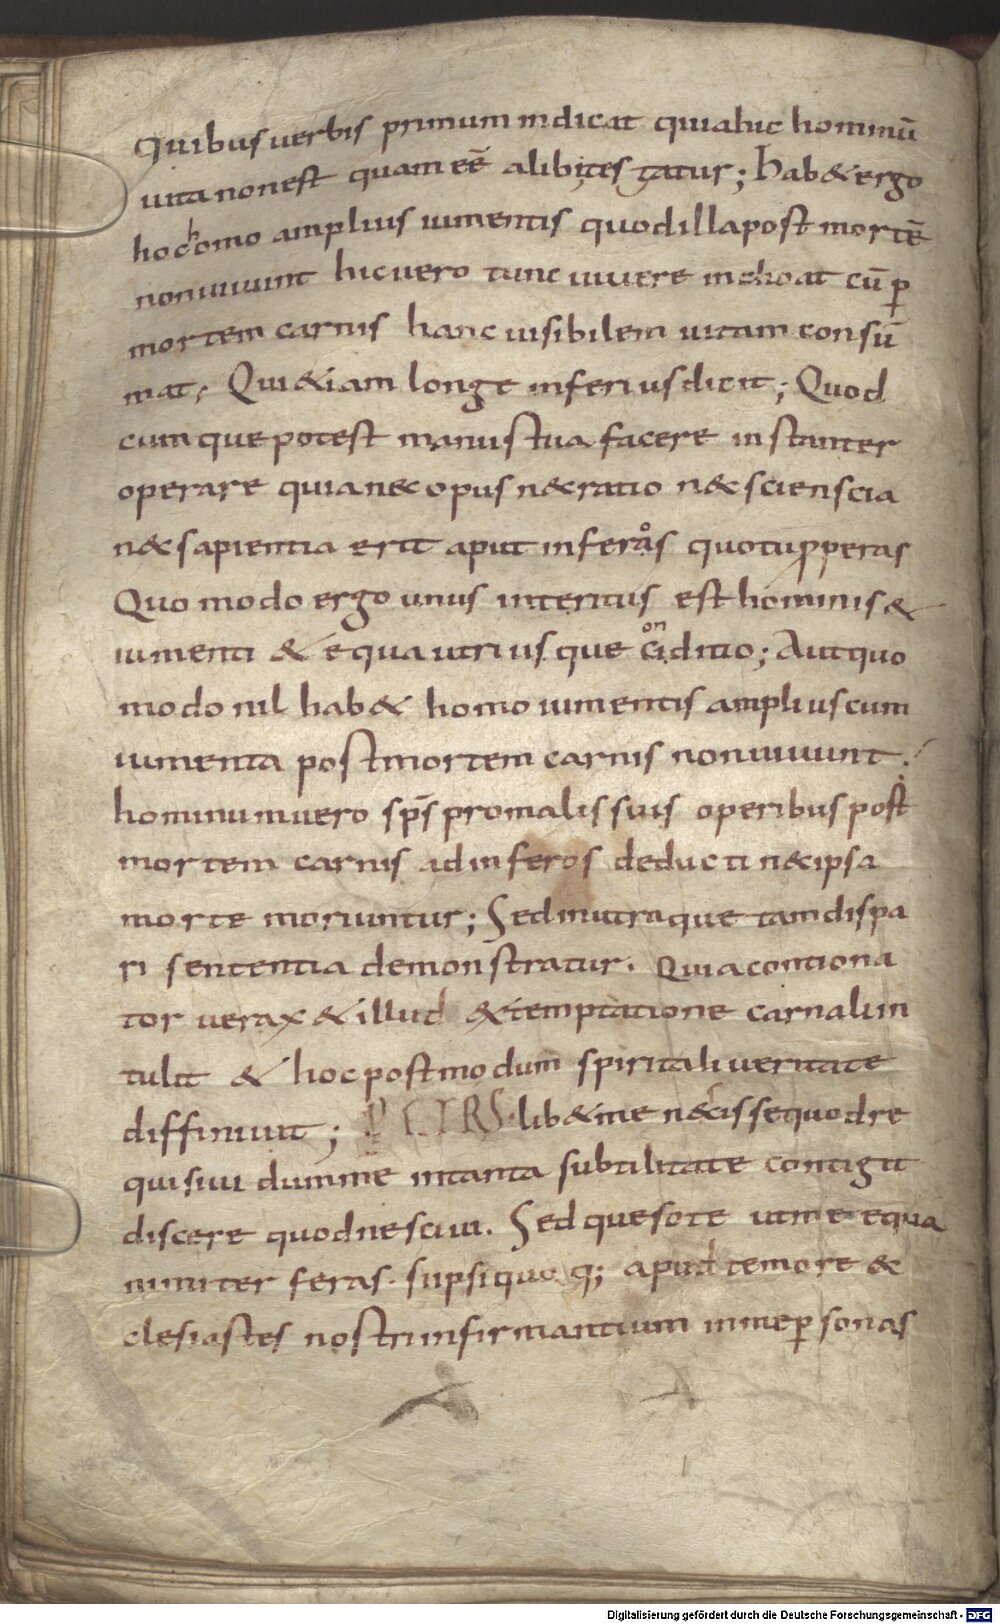 Quibus uerbis primum indicat quia hic hominū
uita non est quam eē alibi testatur; hab& ergo
hoc homo amplius iumentis quod illa post mortē
non uiuunt hic uero tunc uiuere inchoat cū p
mortem carnis hanc uisibilem uitam consū
mat; Qui &iam longe inferius dicit; Quod
cumque potest manus tua facere instanter
operare quia nec opus n&c ratio n&c scienscia
n&c sapientia erit aput inferos quo tu pperas
Quo modo ergo unus interitus est hominis &
iumenti & equa utriusque conditio; Aut quo
modo nil hab& homo iumentis amplius cum
iumenta post mortem carnis non uiuunt.
hominum uero sp̄s pro malis suis operibus post
mortem carnis ad inferos deducti nec ipsa
morte moriuntur; Sed in utraque tam dispa
ri sententia demonstratur. Quia contiona
tor uerax & illud & temptatione carnali in
tulit & hoc postmodum spiritali ueritate
diffiniuit; PETRS. lib& me necisse quod re
quisiui dum me in tanta subtilitate contigit
discere quod nesciui. Sed queso te ut me equa
nimiter feras. si ipse quoq; apud te more &
clesiastes nostri infirmantium in me p sonas
Digitalisierung gefördert durch die Deutsche Forschungsgemeinschaft - DFG